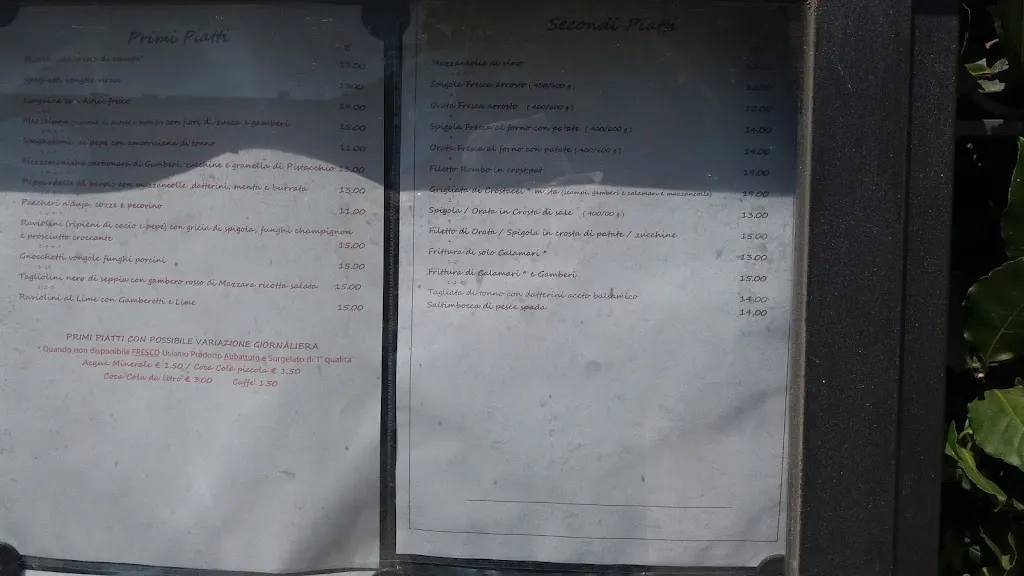 Primi Piatti
€
13.00
Spaghetti vongole veraci
13.00
con Astice fresco
19.00
con fiori di zucca e gamberi
15.00
cacio e pepe con amatriciana di tonno
11.00
Mezzemaniche carbonara di Gamberi, zucchine e granella di Pistacchio 15.00
Pappardelle al basilico con mazzancolle, datterini, menta e burrata
13.00
Paccheri n'duja, cozze e pecorino
11.00
Raviolini (ripieni di cacio e pepe) con gricia di spigola, funghi champignon
e prosciutto croccante
15.00
Gnocchetti vongole funghi porcini
15.00
Tagliolini nero di seppia con gambero rosso di Mazzara ricotta salata 15.00
Raviolini al Lime con Gamberetti e Lime
15.00
PRIMI PIATTI CON POSSIBILE VARIAZIONE GIORNALIERA
* Quando non disponibile FRESCO Usiamo Prodotto Abbattuto e Surgelato di 1° qualità
Acqua Minerale € 1.50 / Coca Cola piccola € 1.50
Coca Cola da litro € 3.00 Caffe' 1.50
Secondi Piatti
Mazzancolle al vino
Spigola Fresca arrosto (400/600 g) 12.00
Orata Fresca arrosto (400/600 g) 12.00
Spigola Fresca al forno con patate (400/600 g) 14.00
Orata Fresca al forno con patate (400/600 g) 14.00
Filetto Rombo in crosta pat 19.00
Grigliata de Crostacei * mista (scampi, gamberi e calamari e mazzancolle) 19.00
Spigola / Orata in Crosta di sale 13.00
Filetto di Orata / Spigola in crosta di patate / zucchine 15.00
Frittura di solo Calamari * 13.00
Frittura di Calamari * e Gamberi 15.00
Tagliata di tonno con datterini aceto balsamico 14.00
Saltimbocca di pesce spada 14.00